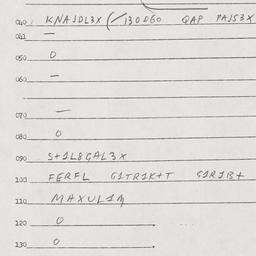 040. KNASDL3X (/130DGO QAP PAJS3X
041 —
050 0
060 —
070 —
080 0
090 S+1L8GAL3X
100 FERFL G1TR1K+T S1R1B+
110 MAXUL1M
120 0
130 0